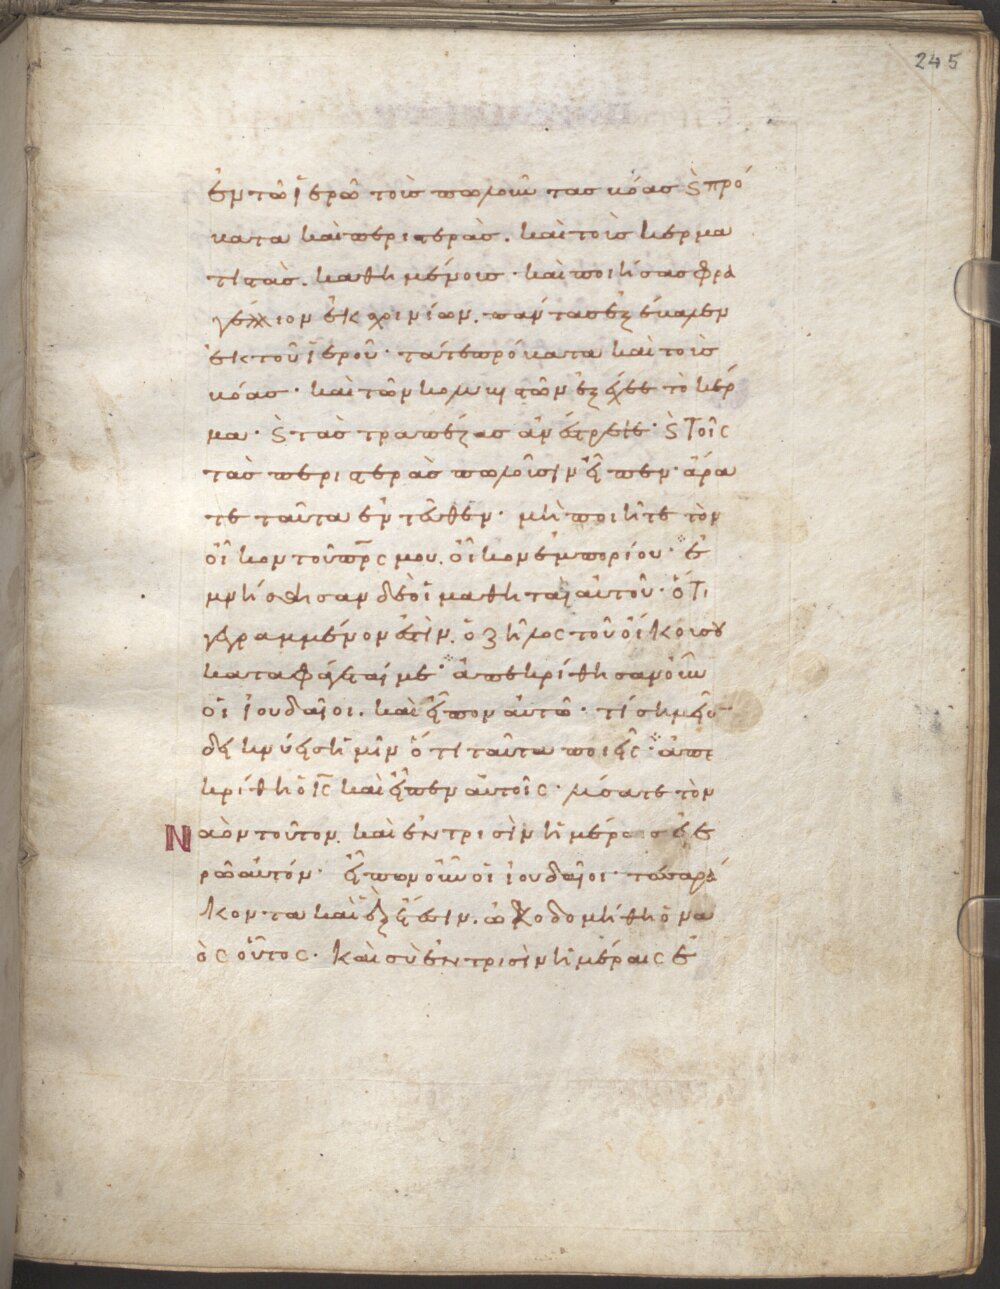 245
ἐν τῶ ἱερῶ τοὺς πωλοῦντας βόας ϗ πρό
βατα καὶ περιστερὰς. καὶ τοὺς κερμα
τιστὰς. καθημένους· καὶ ποιήσας φρα
γέλλιον ἐκ σχοινίων. πάντας ἐξέβαλεν
ἐκ τοῦ ἱεροῦ· τά τε πρόβατα καὶ τοὺς
βόας· καὶ τῶν κολλυβιστῶν ἐξέχεε τὸ κέρ
μα· ϗ τὰς τραπέζας ἀνέστρεψε· ϗ τοῖς
τὰς περιστερὰς πωλοῦσιν εἶπεν· ἄρα
τε ταῦτα ἐντεῦθεν· μὴ ποιῆτε τὸν
οἶκον τοῦ πρς μου. οἶκον ἐμπορίου· ἐ
μνήσθησαν δὲ οἱ μαθηταὶ αὐτοῦ· ὅτι
γεγραμμένον ἐστὶν. ὁ ζῆλος τοῦ οἴκου σου
καταφάγεταί με· ἀπεκρίθησαν οὖν
οἱ ἰουδαῖοι. καὶ εἶπον αὐτῶ· τί σημεῖον
δεικνύεις ἡμῖν ὅτι ταῦτα ποιεῖς· ἀπε
κρίθη ὁ ις καὶ εἶπεν αὐτοῖς· λύσατε τὸν
ναὸν τοῦτον. καὶ ἐν τρισὶν ἡμέραις ἐγε
ρῶ αὐτόν· εἶπον οὖν οἱ ἰουδαῖοι· τεσσαρά
κοντα καὶ ἓξ ἔτεσιν. ὠκοδομήθη ὁ να
ὸς οὗτος· καὶ σὺ ἐν τρισὶν ἡμέραις ἐ